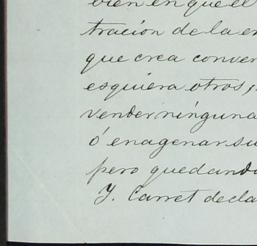 bien en que el
tración de la en
que crea conven
esquiera otros,
vender ninguna
ó enagenar su
pero quedando
Y. Carret decla